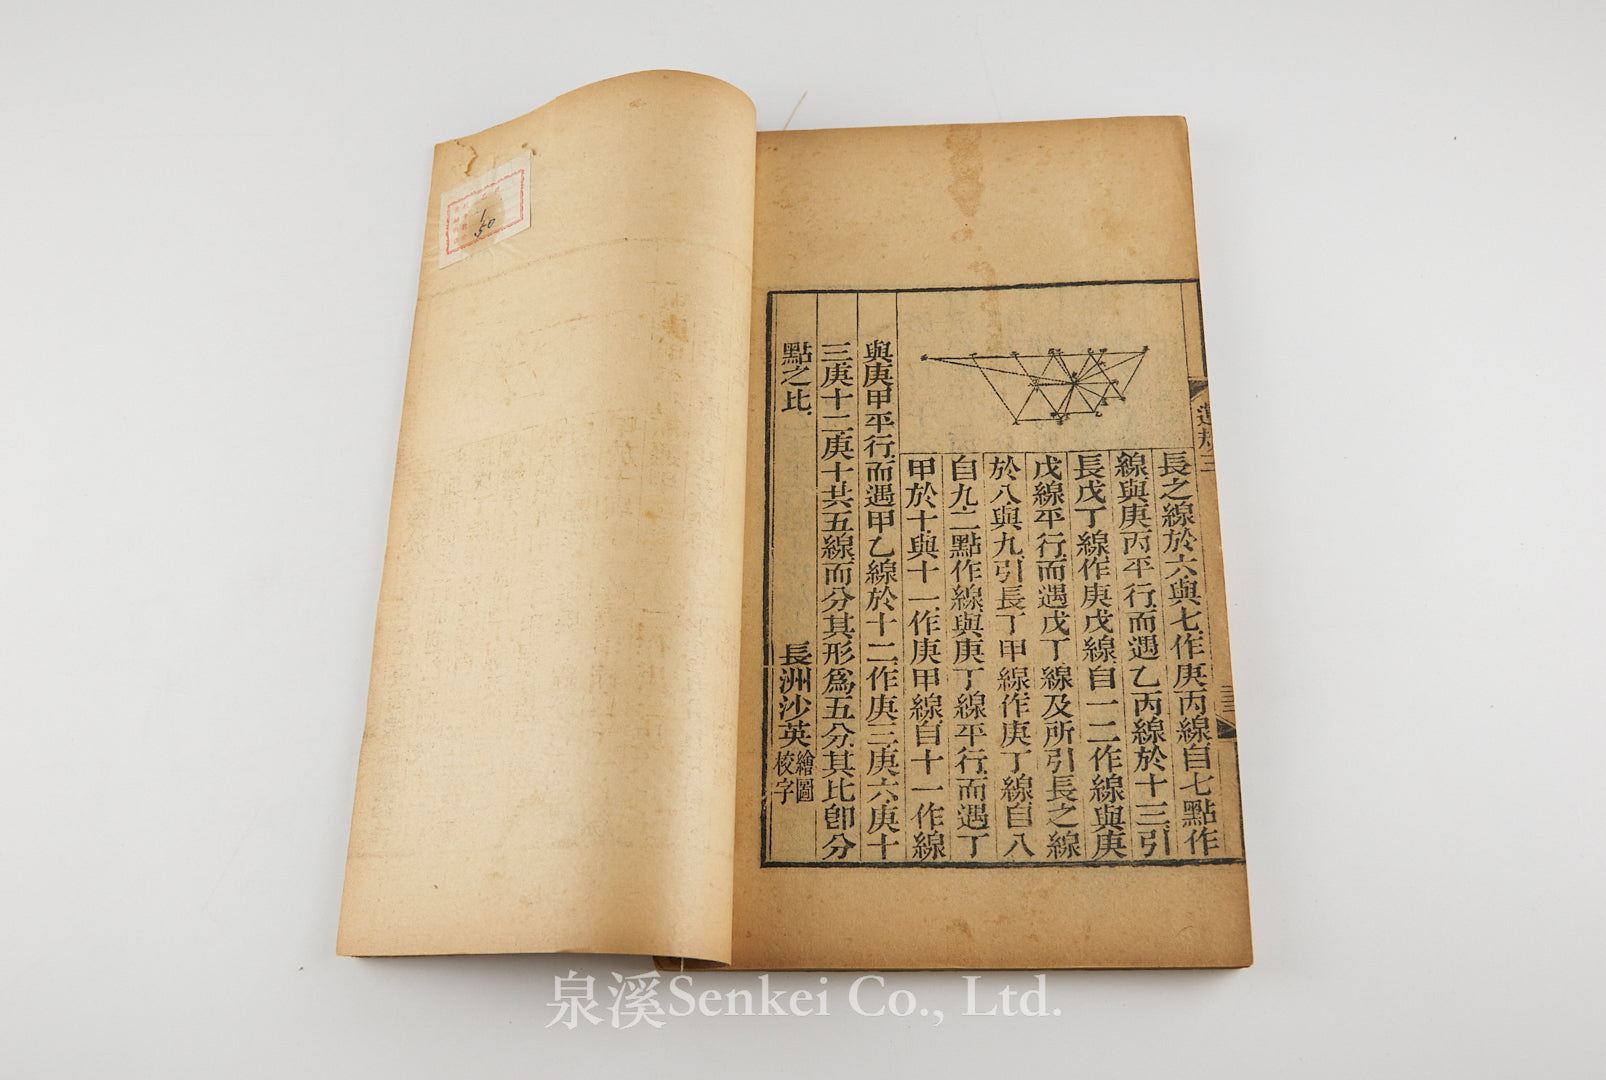 長之線於六與七作庚丙線自七點作
線與庚丙平行而遇乙丙線於十三引
長戊丁線作庚戊線自一二作線與庚
戊線平行而遇戊丁線及所引長之線
於八與九引長丁甲線作庚丁線自八
自九二點作線與庚丁線平行而遇丁
甲於十與十一作庚甲線自十一作線
與庚甲平行而遇甲乙線於十二作庚三庚六庚十
三庚十二庚十共五線而分其形爲五分其比卽分
點之比
長洲沙英繪圖校字
1/50
泉溪Senkei Co., Ltd.